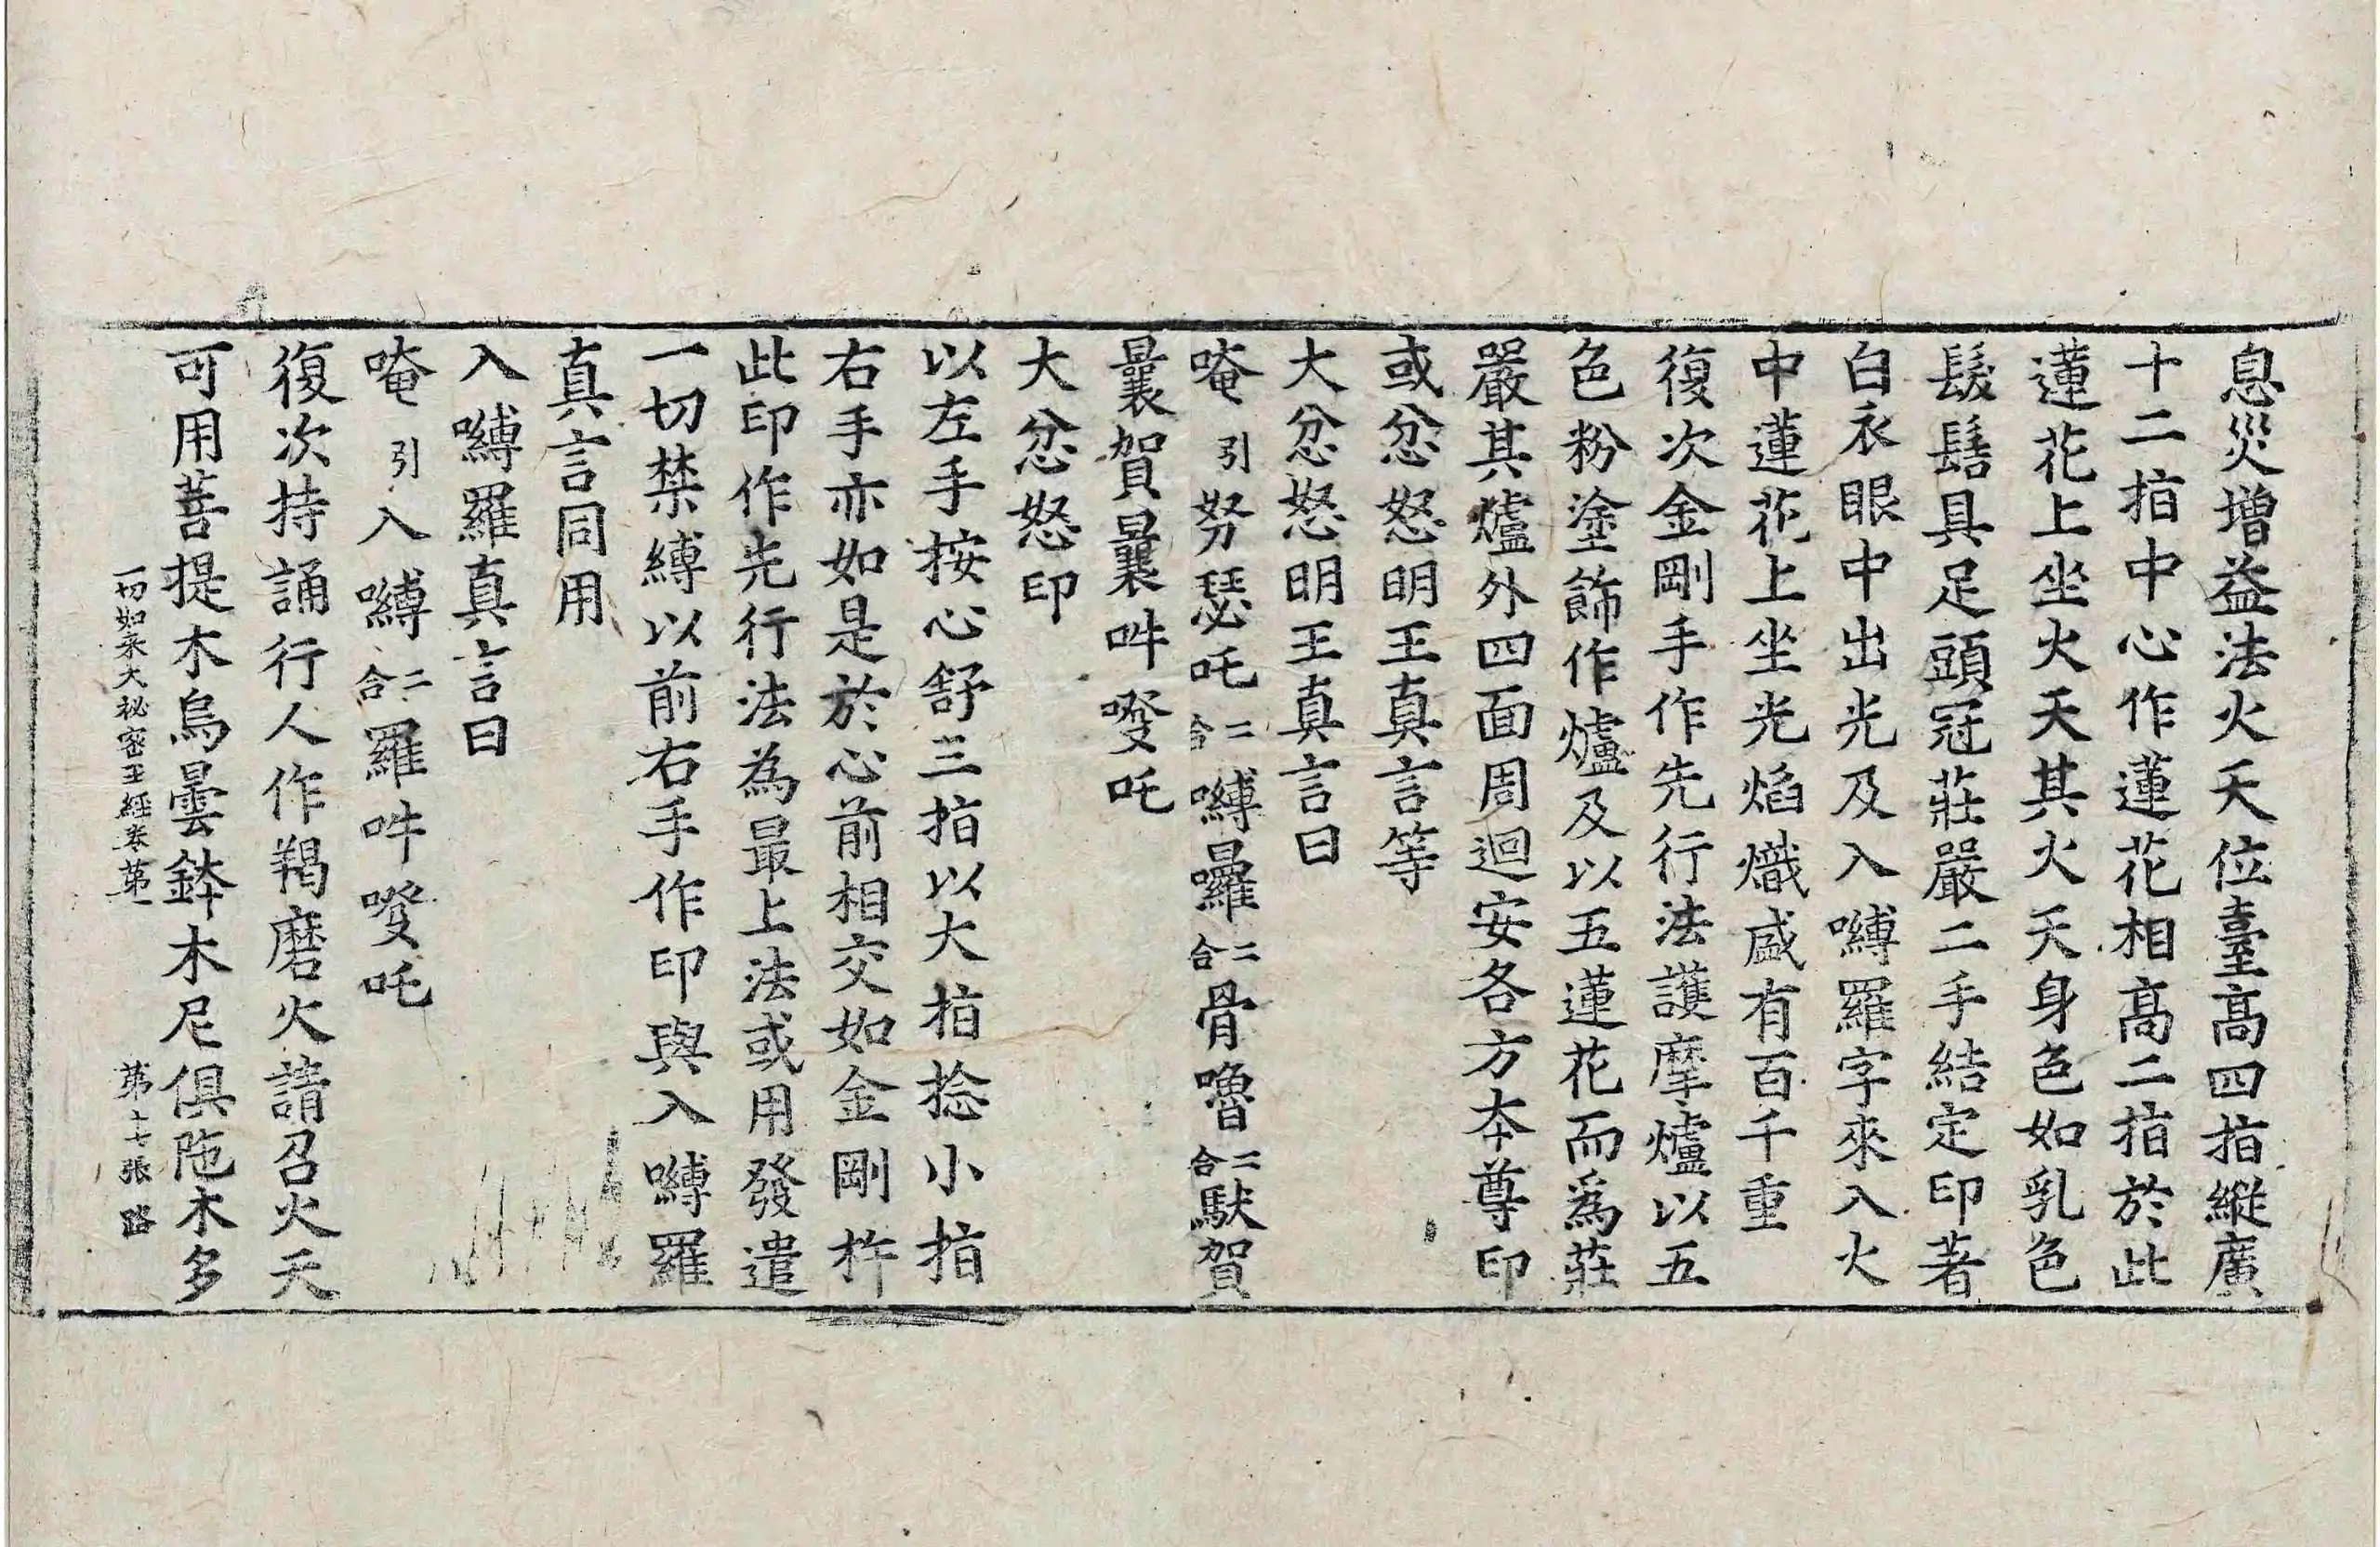 息災增益法火天位臺高四指縱廣
十二指中心作蓮花相高二指於此
蓮花上坐火天其火天身色如乳色
髮髻具足頭冠莊嚴二手結定印著
白衣眼中出光及入嚩羅字來入火
中蓮花上坐光焰熾盛有百千重
復次金剛手作先行法護摩爐以五
色粉塗飾作爐及以五蓮花而爲莊
嚴其爐外四面周迴安各方本尊印
或忿怒明王真言等
大忿怒明王真言曰
唵引努瑟吒二合嚩囉二合骨嚕二合馱賀
曩賀曩吽㗶吒
大忿怒印
以左手按心舒三指以大指捻小指
右手亦如是於心前相交如金剛杵
此印作先行法為最上法或用發遣
一切禁縛以前右手作印與入嚩羅
真言同用
入嚩羅真言曰
唵引入嚩二合羅吽㗶吒
復次持誦行人作羯磨火請召火天
可用菩提木烏曇鉢木尼俱陁木多
一切如来大祕密王經卷第一 第十七張 路